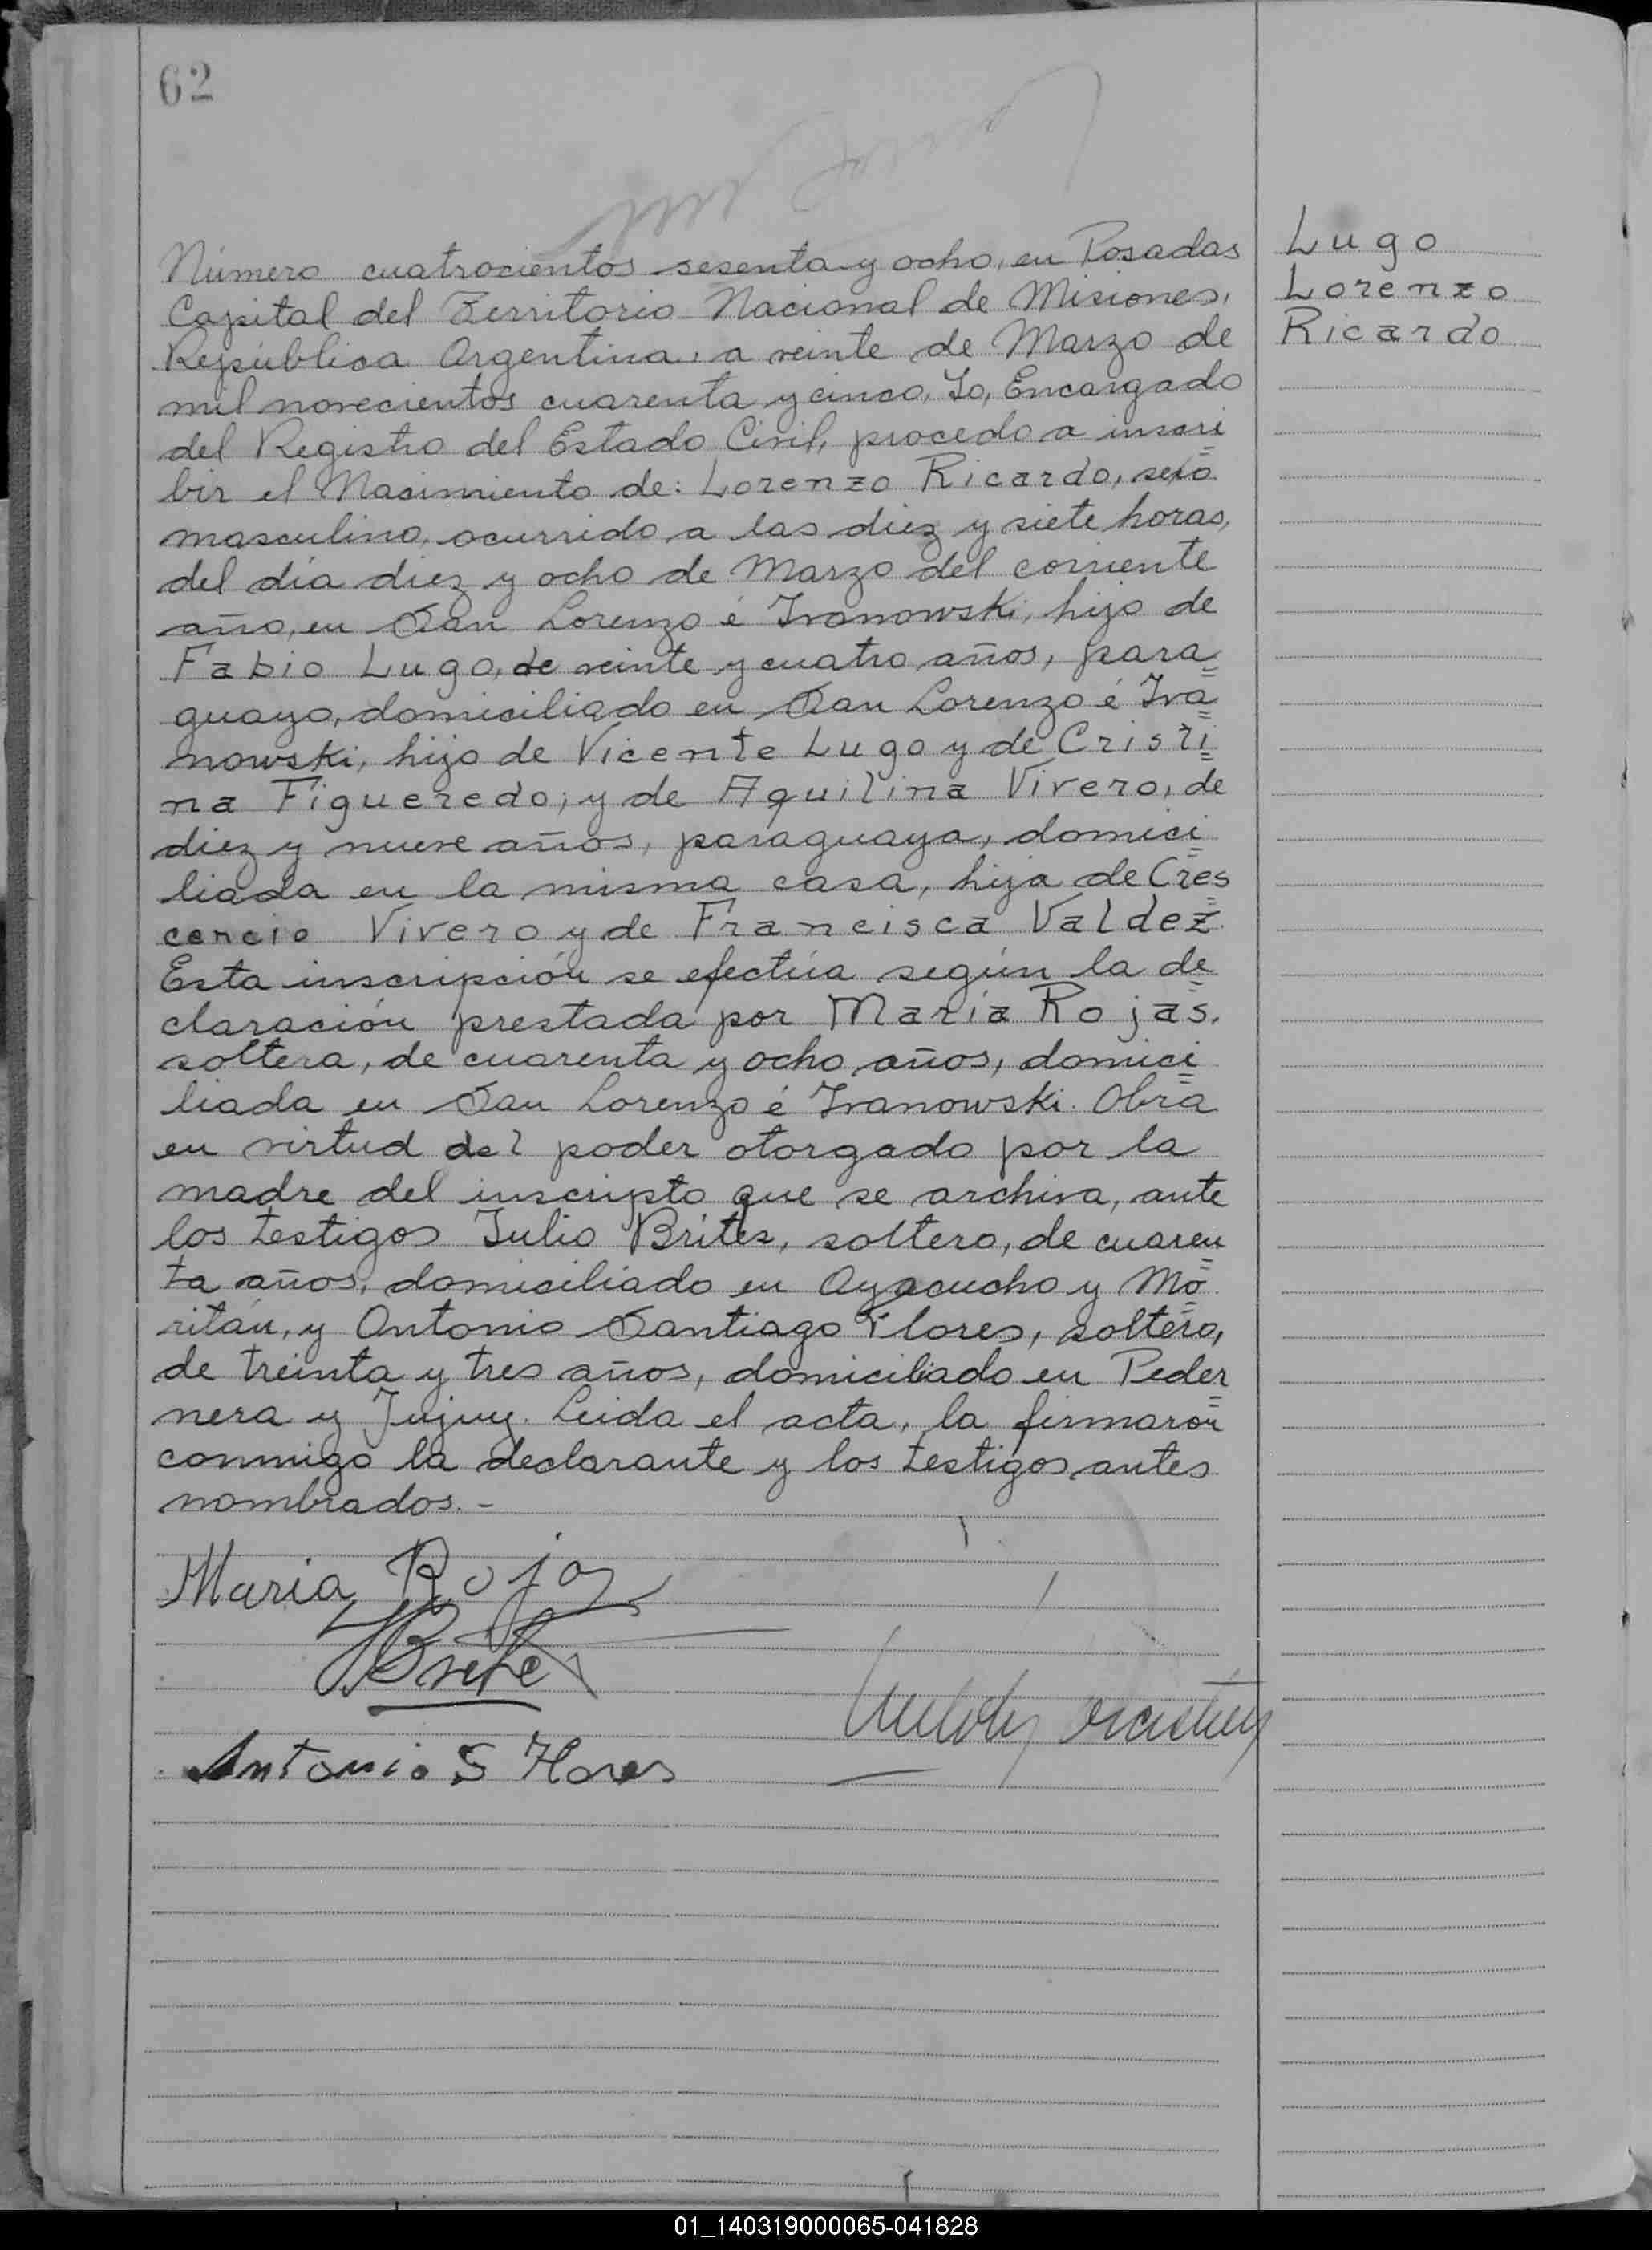 62
Lugo
Lorenzo
Ricardo
Número cuatrocientos sesenta y ocho, en Posadas
Capital del Territorio Nacional de Misiones,
República Argentina, a veinte de Marzo de
mil novecientos cuarenta y cinco, Yo, Encargado
del Registro del Estado Civil, procedo a inscri=
bir el Nacimiento de: Lorenzo Ricardo, sexo
masculino, ocurrido a las diez y siete horas,
del día diez y ocho de Marzo del corriente
año, en San Lorenzo é Ivanowski, hijo de
Fabio Lugo, de veinte y cuatro años, para=
guayo, domiciliado en San Lorenzo é Iva=
nowski, hijo de Vicente Lugo y de Cristi=
na Figueredo; y de Aquilina Vivero, de
diez y nueve años, paraguaya, domici=
liada en la misma casa, hija de Cres=
cencio Vivero y de Francisca Valdez.
Esta inscripción se efectúa según la de=
claración prestada por María Rojas,
soltera, de cuarenta y ocho años, domici=
liada en San Lorenzo é Ivanowski. Obra
en virtud del poder otorgado por la
madre del inscripto que se archiva, ante
los testigos Julio Brites, soltero, de cuaren=
ta años, domiciliado en Ayacucho y Mo=
ritán, y Antonio Santiago Flores, soltero,
de treinta y tres años, domiciliado en Peder=
nera y Jujuy. Leida el acta, la firmaron
conmigo la declarante y los testigos antes
nombrados.-
Maria Rojas
Antonio S Flores
01_140319000065-041828